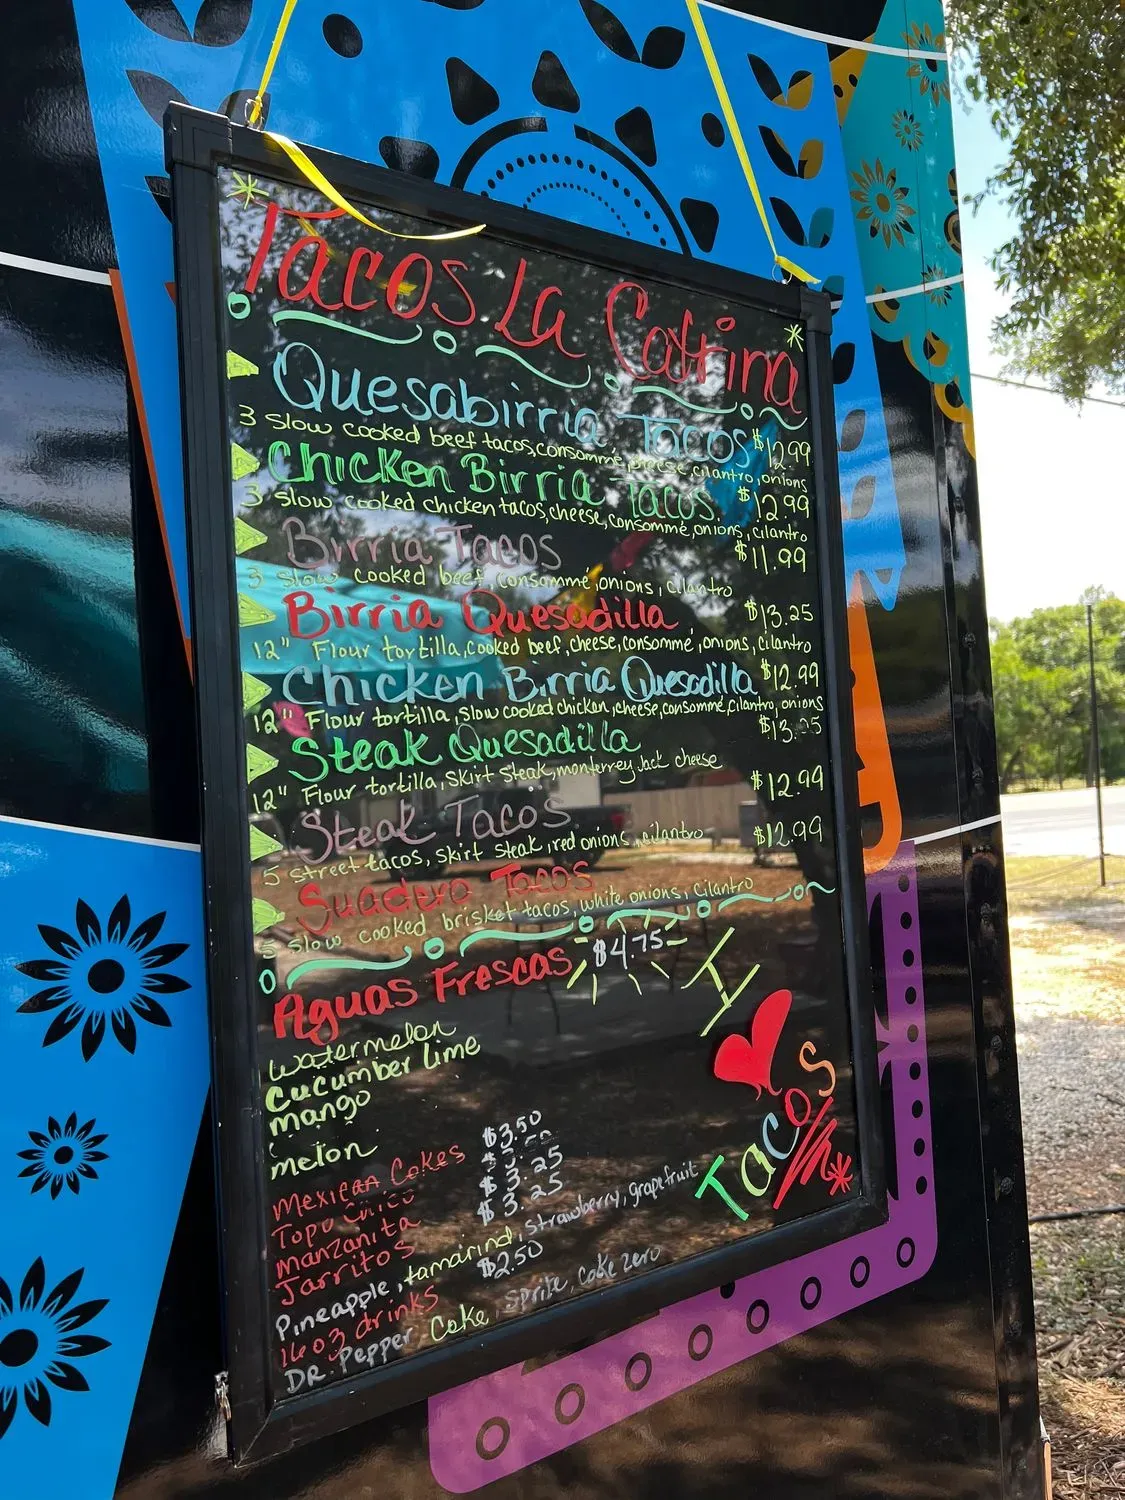 Tacos La Catrina
Quesabirria Tacos $12.99
3 slow cooked beef tacos, consommé, cheese, cilantro, onions
Chicken Birria Tacos $12.99
3 slow cooked chicken tacos, cheese, consommé, onions, cilantro
Birria Tacos $11.99
3 slow cooked beef, consommé, onions, cilantro
Birria Quesadilla $13.25
12" Flour tortilla, cooked beef, cheese, consommé, onions, cilantro
Chicken Birria Quesadilla $12.99
12" Flour tortilla, slow cooked chicken, cheese, consommé, cilantro, onions
Steak Quesadilla $13.25
12" Flour tortilla, skirt steak, monterrey Jack cheese
Steak Tacos $12.99
5 street tacos, skirt steak, red onions, cilantro
Suadero Tacos $12.99
5 slow cooked brisket tacos, white onions, cilantro
Aguas Frescas $4.75
watermelon
cucumber lime
mango
melon
I
Tacos
Mexican Cokes $3.50
Topo Chico
manzanita $3.25
Jarritos $3.25
Pineapple, tamarind, strawberry, grapefruit
16oz drinks $2.50
DR. Pepper, Coke, Sprite, Coke zero